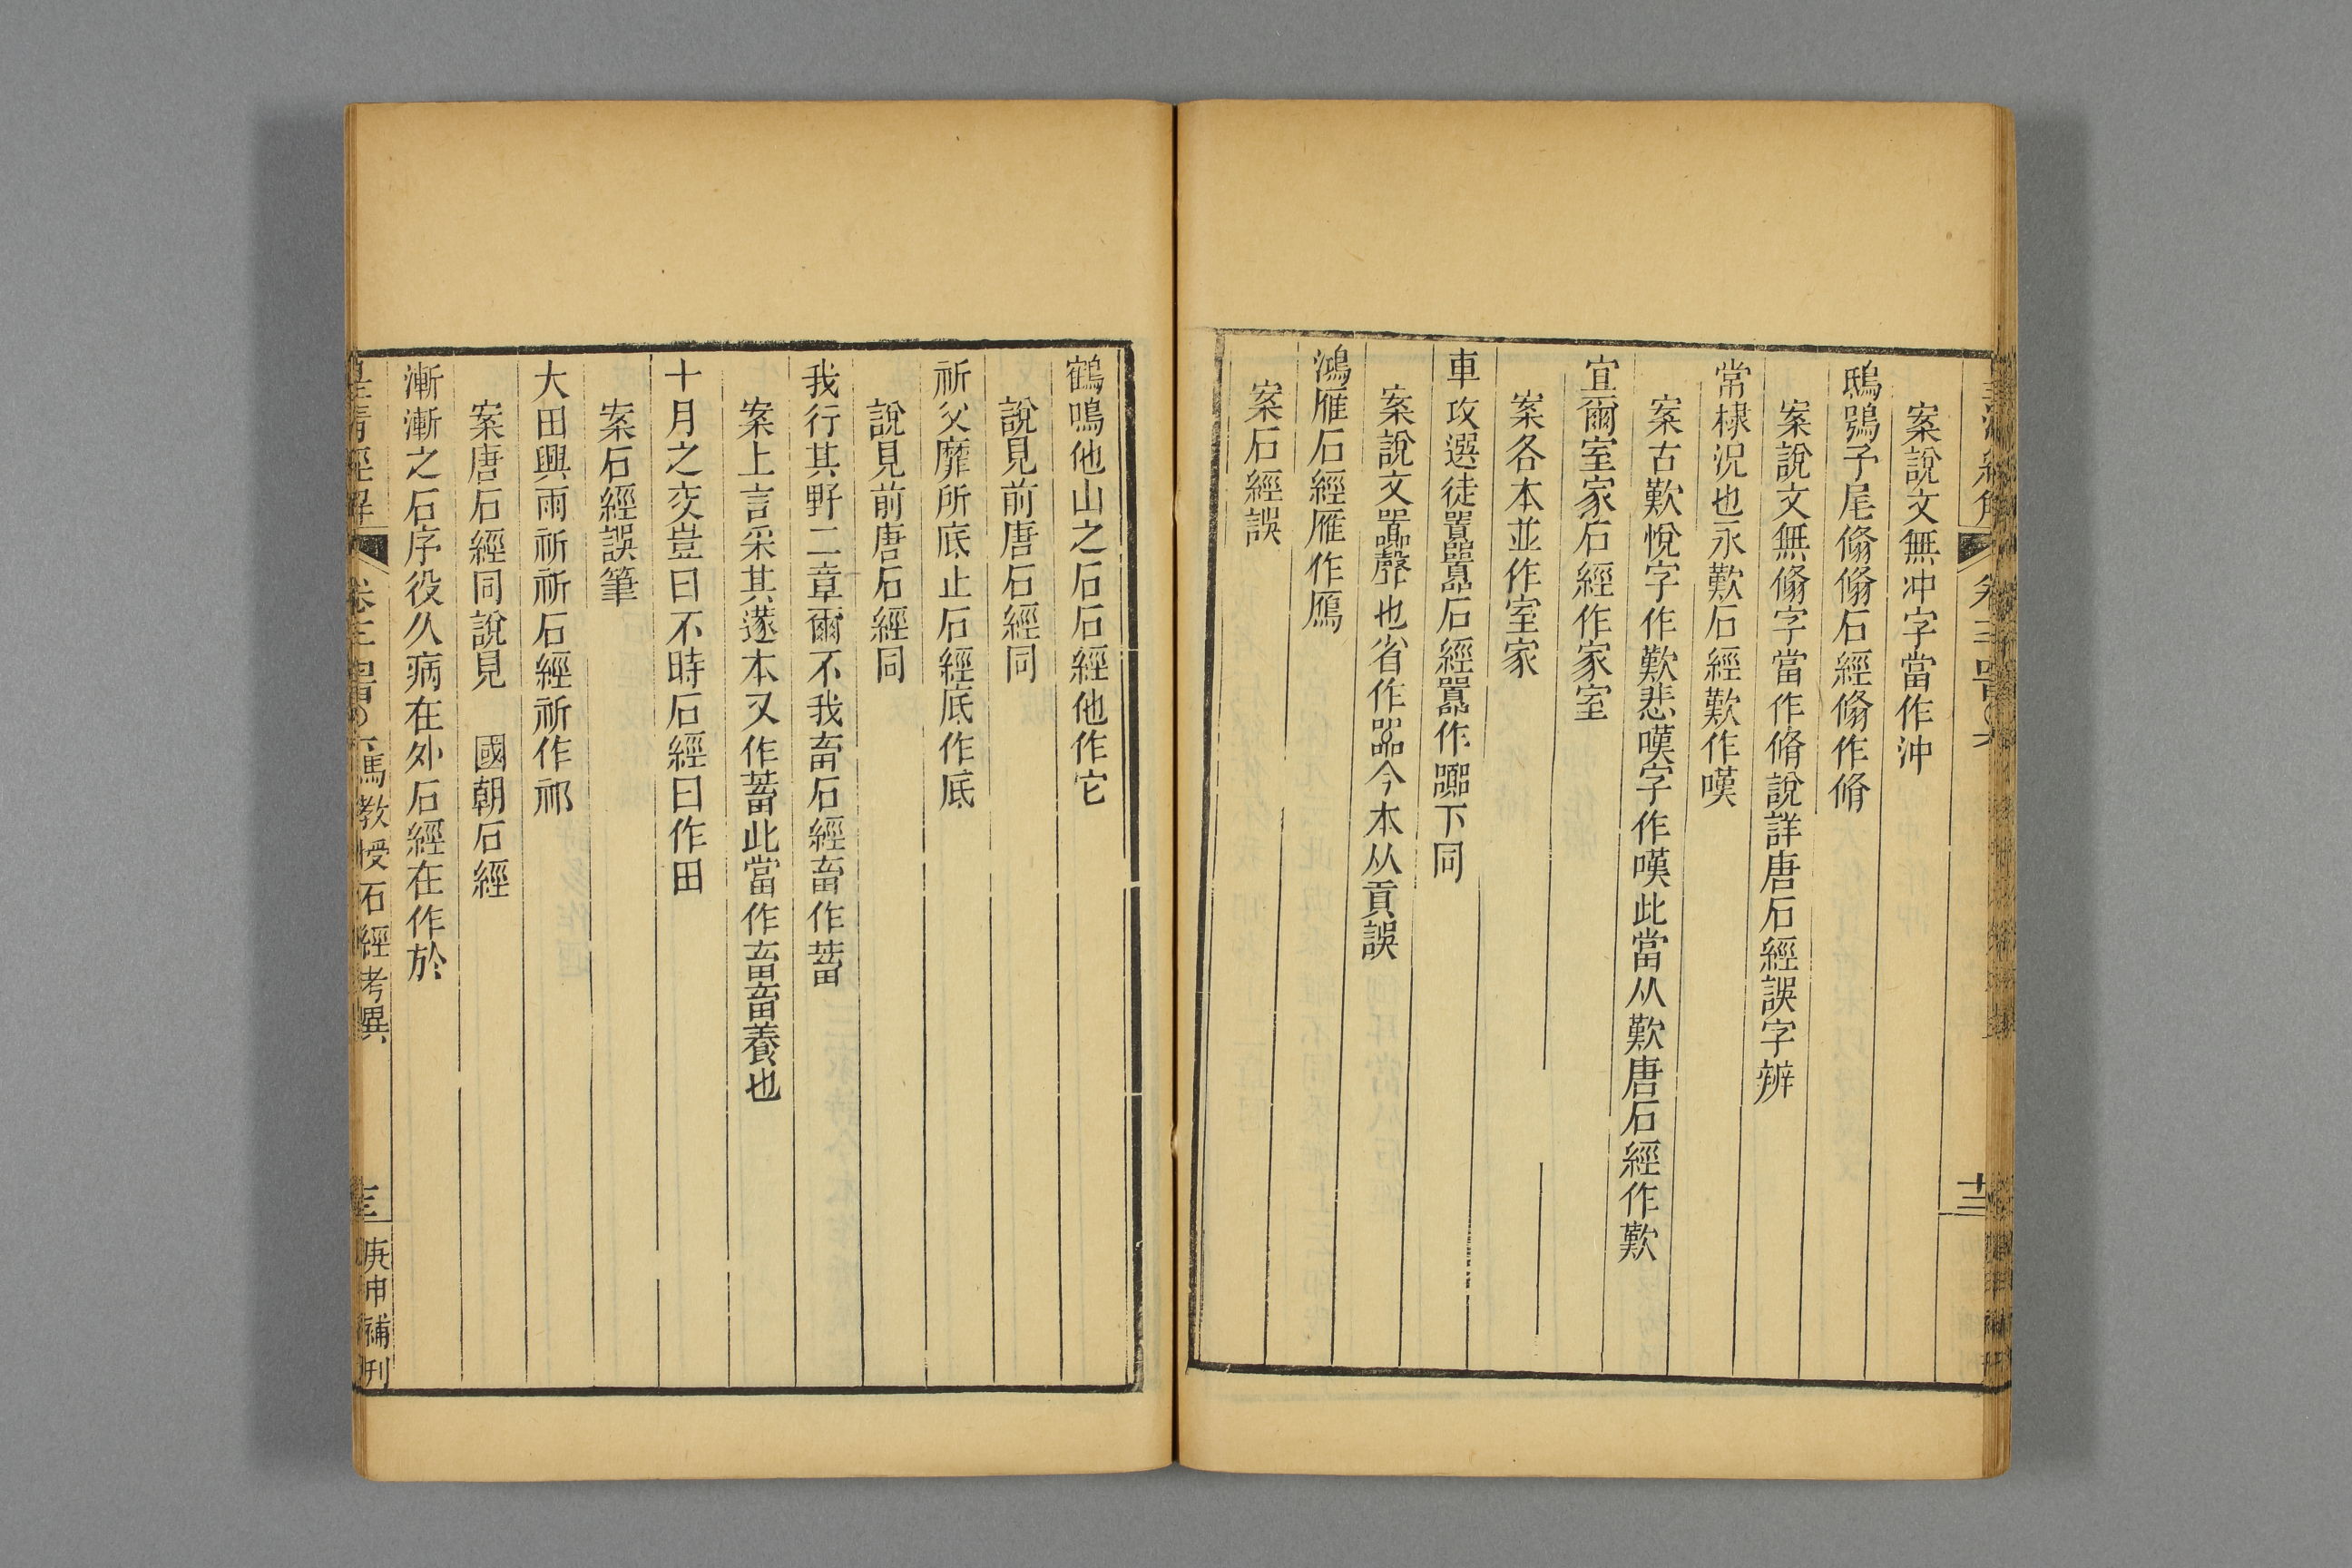 案說文無冲字當作沖
鴟鴞予尾翛翛石經翛作脩
案說文無翛字當作脩說詳唐石經誤字辨
常棣況也永歎石經歎作嘆
案古歎悅字作歎悲嘆字作嘆此當从歎唐石經作歎
宜爾室家石經作家室
案各本並作室家
車攻選徒囂囂石經囂作嚻下同
案說文嚻聲也省作㗊今本从貢誤
鴻雁石經雁作鴈
案石經誤
鶴鳴他山之石石經他作它
說見前唐石經同
祈父靡所底止石經底作厎
說見前唐石經同
我行其野二章爾不我畜石經畜作蓄
案上言采其蓫本又作蓄此當作畜畜養也
十月之交豈曰不時石經曰作田
案石經誤筆
大田興雨祈祈石經祈作祁
案唐石經同說見 國朝石經
漸漸之石序役久病在外石經在作於
皇清經解 卷三 馮教授石經考異 庚申補刊